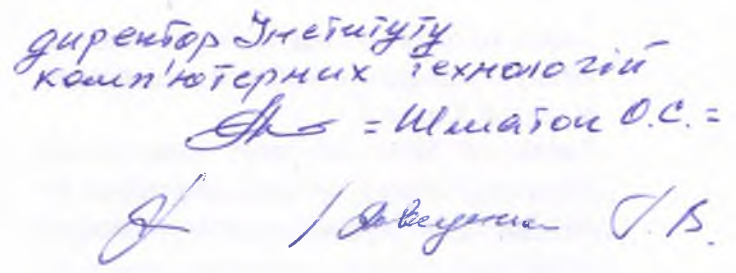 директор Інституту
комп'ютерних технологій
= Шматок О.С. =
/ Г. В.